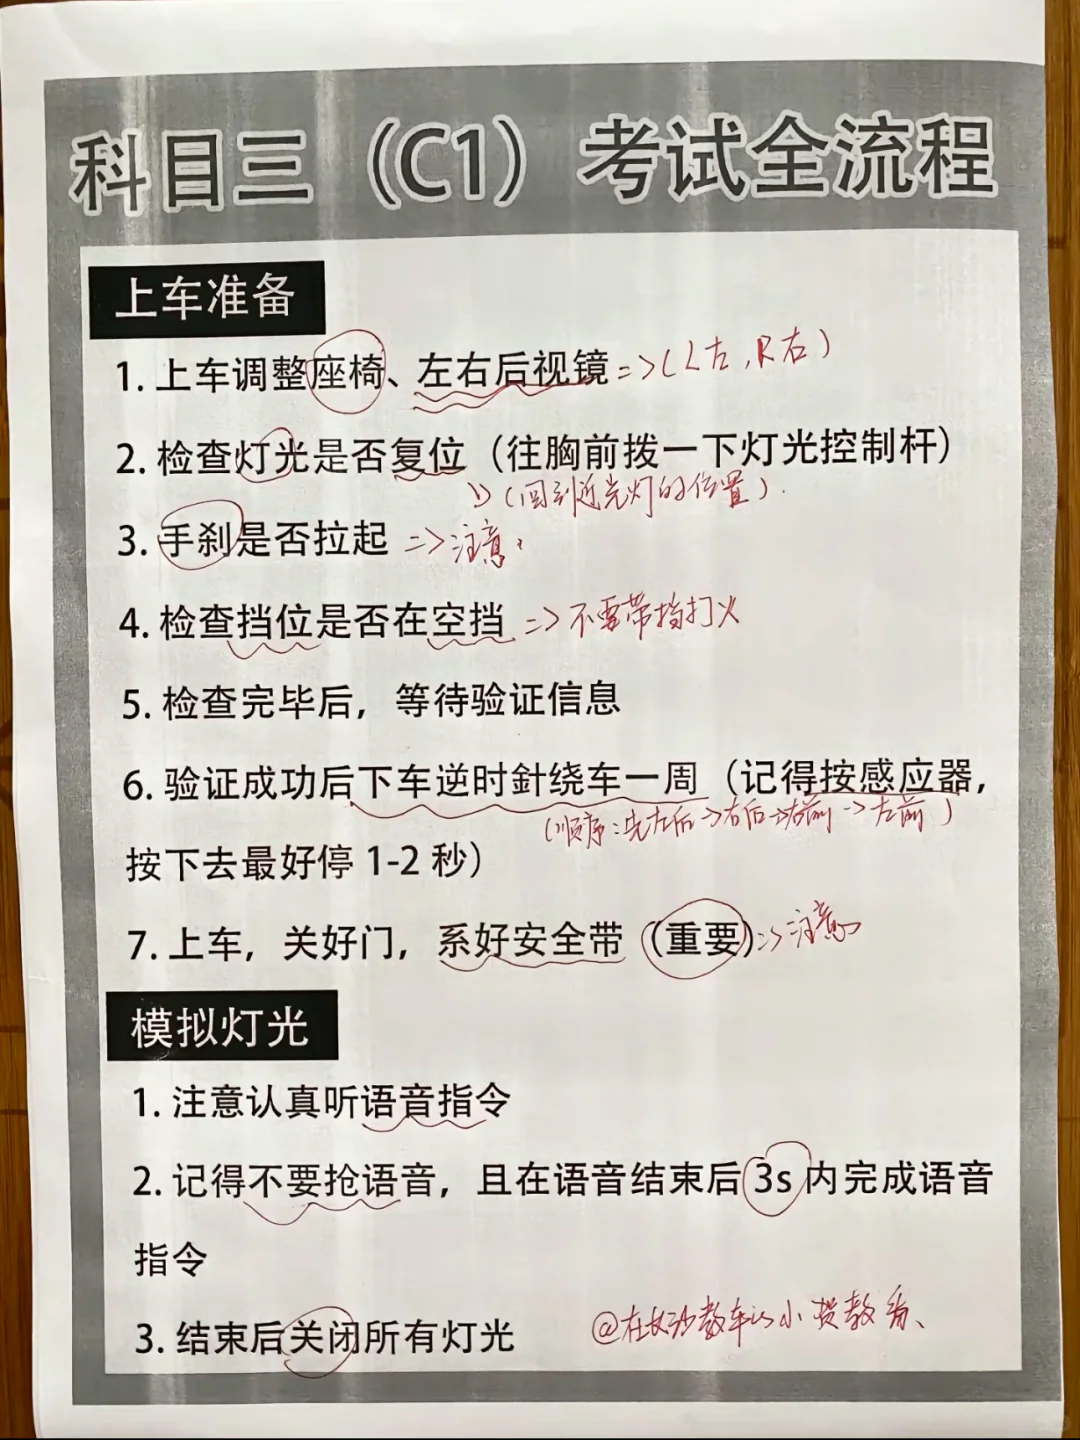 科目三（C1）考试全流程
上车准备
1. 上车调整座椅、左右后视镜 => (L左，R右)
2. 检查灯光是否复位（往胸前拨一下灯光控制杆）
(回到近光灯的位置).
3. 手刹是否拉起 => 注意.
4. 检查挡位是否在空挡 => 不要带挡打火
5. 检查完毕后，等待验证信息
6. 验证成功后下车逆时針绕车一周（记得按感应器，
(顺序:先左后->右后->右前->左前)
按下去最好停 1-2 秒）
7. 上车，关好门，系好安全带（重要）=> 注意
模拟灯光
1. 注意认真听语音指令
2. 记得不要抢语音，且在语音结束后 3s 内完成语音
指令
3. 结束后关闭所有灯光
@在长沙教车的小贺教